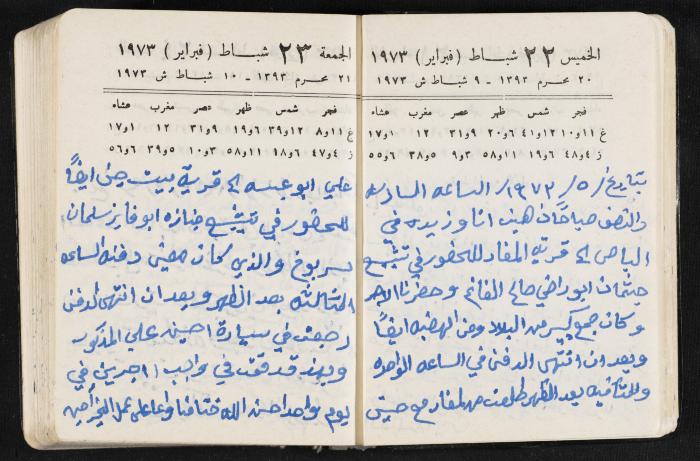 الخميس ٢٢ شباط (فبراير) ١٩٧٣
٢٠ محرم ١٣٩٣ - ٩ شباط ش ١٩٧٣
فجر شمس ظهر عصر مغرب عشاء
غ ١١و١٠ ١٢و٤١ ٦و٢٠ ٩و٣١ ١٢ ١و١٧
ز ٤و٤٨ ٦و١٩ ١١و٥٨ ٣و٩ ٥و٣٨ ٦و٥٥
بتاريخ /٥/ ١٩٧٣/ الساعه السادسه
والنصف صباحاً ذهبت انا وزيد في
الباص الى قرية المغار للحضور في تشييع
جثمان ابو راضي صالح الغانم وحضرنا الاجر
وكان جمع كبير من البلاد ومن الهضبه ايضاً
وبعد ان انتهى الدفن في الساعه الواحده
والثانيه بعد الظهر طلعت من المغار مع حسين
الجمعة ٢٣ شباط (فبراير) ١٩٧٣
٢١ محرم ١٣٩٣ - ١٠ شباط ش ١٩٧٣
فجر شمس ظهر عصر مغرب عشاء
غ ١١و٨ ١٢و٣٩ ٦و١٩ ٩و٣١ ١٢ ١و١٧
ز ٤و٤٧ ٦و١٨ ١١و٥٨ ٣و١٠ ٥و٣٩ ٦و٥٦
علي ابو عبسه الى قرية بيت جن ايضاً
للحضور في تشييع جنازه ابو فايز سلمان
سربوخ والذي كان معين دفنه الساعه
الثالثه بعد الظهر وبعد ان انتهى الدفن
رجعت في سيارة حسين علي المذكور
وبهذا قد قمت في واجب اجرين في
يوم واحد احسن الله ختامنا واعاننا على عمل الخير آمين